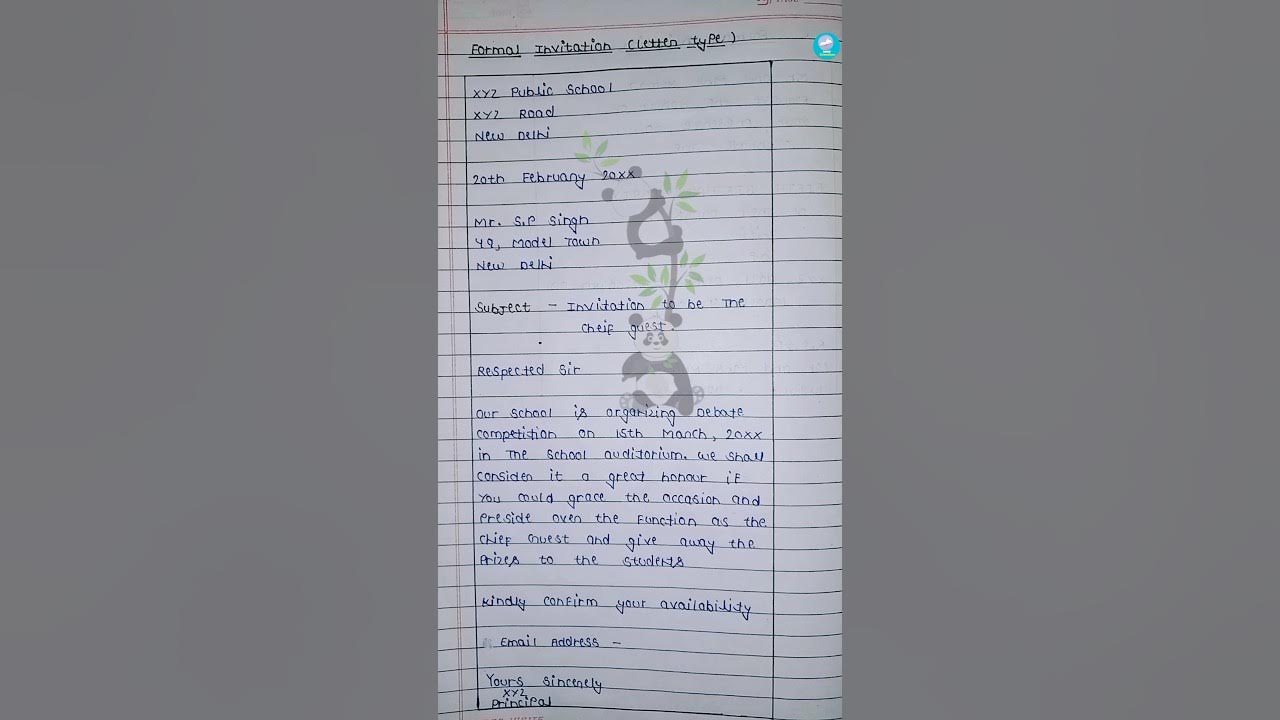 Formal Invitation (Letter type)
XYZ Public School
XYZ Road
New Delhi
20th February 20XX
Mr. S.P Singh
49, Model Town
New Delhi
Subject - Invitation to be the
Cheif guest.
Respected Sir
Our School is organizing Debate
competition on 15th March, 20XX
in The School auditorium. We shall
consider it a great honour if
You could grace the occasion and
Preside over the Function as the
Chief Guest and give away the
Prizes to the students
Kindly confirm your availability
Email Address -
Yours Sincerely
XYZ
Principal